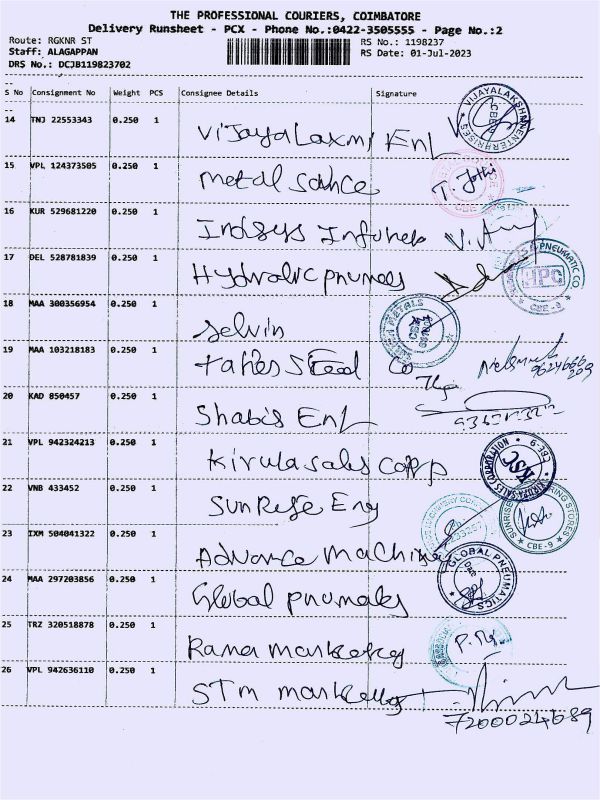 THE PROFESSIONAL COURIERS, COIMBATORE
Delivery Runsheet - PCX - Phone No.:0422-3505555 - Page No.:2
Route: RGKNR ST RS No.: 1198237
Staff: ALAGAPPAN RS Date: 01-Jul-2023
DRS No.: DCJB119823702
S No Consignment No Weight PCS Consignee Details Signature
14 TNJ 22553343 0.250 1 Vijayalaxmi Ent VIJAYALAKSHMI ENTERPRISES CBE
15 VPL 124373505 0.250 1 metal sance T. Jothi CBE
16 KUR 529681220 0.250 1 Indsys Infoheb
17 DEL 528781839 0.250 1 Hydralic pnumals PNEUMATIC CO. HPC CBE-9
18 MAA 300356954 0.250 1 selvin METALS
19 MAA 103218183 0.250 1 tahes Steed Co
20 KAD 850457 0.250 1 Shabis Ent
21 VPL 942324213 0.250 1 Kirula sales Corp KSC SALES CORPORATION CBE-9
22 VNB 433452 0.250 1 Sunrise Eng SUNRISE STORES CBE-9
23 IXM 504041322 0.250 1 Advance machine
24 MAA 297203856 0.250 1 Global pnumales GLOBAL PNEUMATICS Date
25 TRZ 320518878 0.250 1 Rama markeky
26 VPL 942636110 0.250 1 STM markeky
7200024689